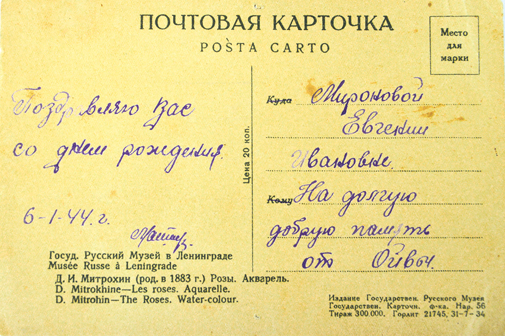 ПОЧТОВАЯ КАРТОЧКА
POŜTA CARTO
Место
для
марки
Поздравляю Вас
со днем рождения.
6-1-44 г.
Госуд. Русский Музей в Ленинграде
Musée Russe à Leningrade
Д. И. Митрохин (род. в 1883 г.) Розы. Акварель.
D. Mitrokhine—Les roses. Aquarelle.
D. Mitrohin—The Roses. Water-colour.
Цена 20 коп.
Куда Мироновой
Евгении
Ивановне.
Кому На долгую
добрую память
от
Издание Государствен. Русского Музея
Государствен. Карточн. ф-ка. Нар. 56
Тираж 300.000. Горлит 21745. 31-7-34